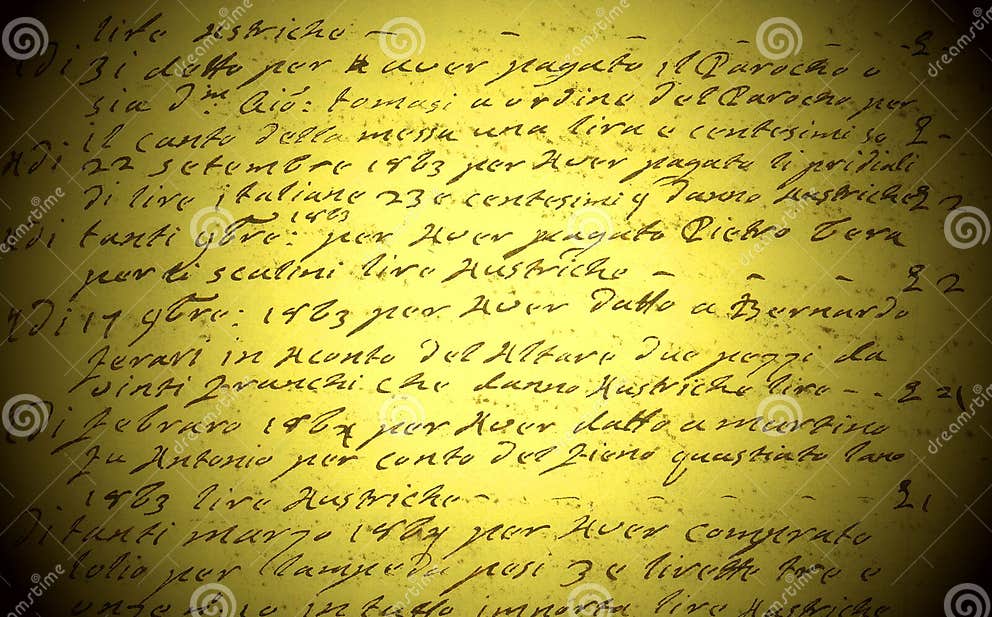 lire Austriche — — — — £
Adi 31 detto per Aaver pagato il Parocho o
sia Dm Gió: tomasi a ordine del Parocho per
il canto della messa una lira e centesimi 50 £ -
Adi 22 setembre 1863 per Aver pagato li prediali
di lire italiane 23 e centesimi 9 danno Austriche £ 2
Adi tanti 9bre: 1863 per Aver pagato Pietro
per li scalini lire Austriche — — — £ 2
Adi 17 9bre: 1863 per Aver datto a Bernardo
ferari in Aconto del Altare due pezzi da
vinti franchi che danno Austriche lire - - £
Adi febraro 1864 per Aver datto a martino
fu Antonio per conto del fieno guastato lano
1863 lire Austriche - - - - - £
di tanti marzo 1864 per Aver comprato
lolio per llampeda pesi 3 e lirette tre e
in tutto importa lire Austriche
dreamstime